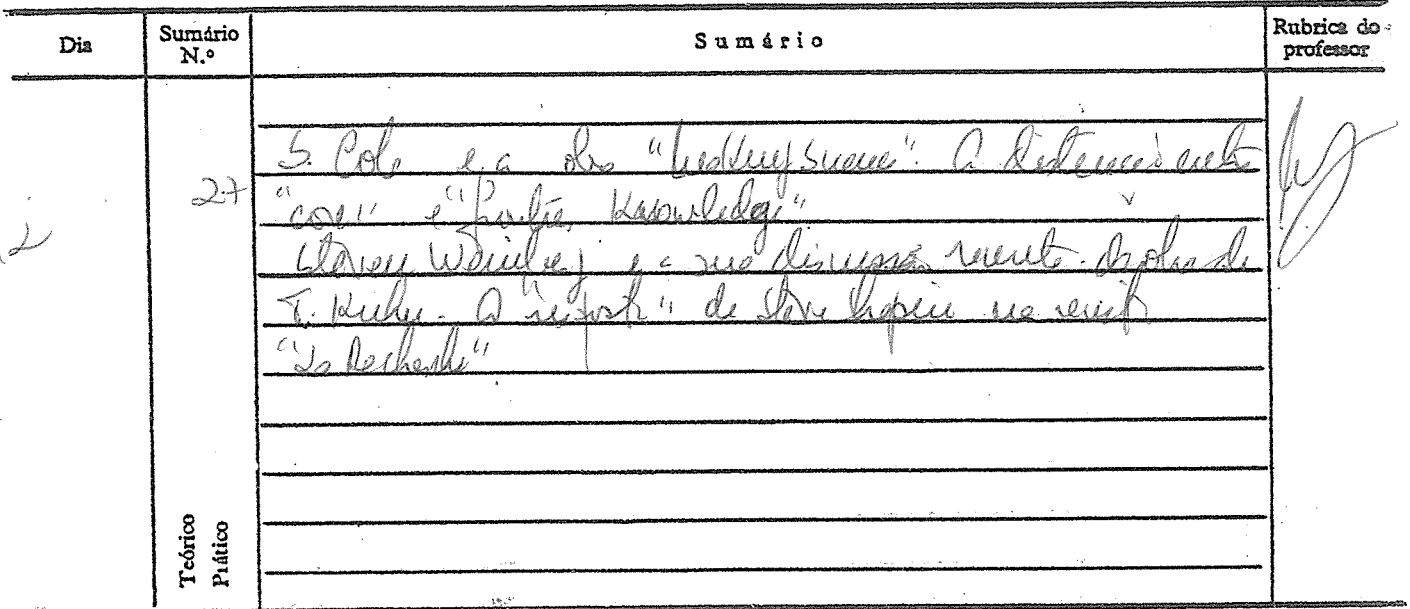 Dia
Sumário N.º
Sumário
Rubrica do professor
27
S. Cole e a obra "Making Science". A distinção entre
"core" e "frontier Knowledge"
Steven Weinberg e a sua discussão recente da obra de
T. Kuhn. A "resposta" de Steve Shapin na revista
"La Recherche"
Teórico
Prático